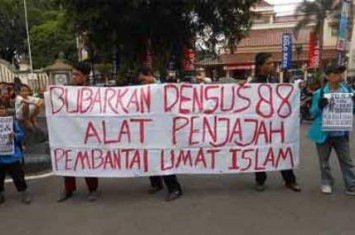 BUBARKAN DENSUS 88
ALAT PENJAJAH
PEMBANTAI UMAT ISLAM